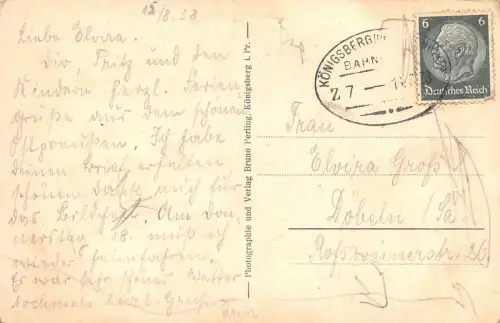 15/8.38
Liebe Elvira.
Dir, Fritz und den
Kindern herzl. Ferien
grüße aus dem schönen
Ostpreußen. Ich habe
deinen Brief erhalten
schönen Dank auch für
das Bild. Am Don-
nerstag 18. muß ich
wieder heimfahren.
Es war sehr schönes Wetter
Nochmals herzl. Grüße
Photographie und Verlag Bruno Perling, Königsberg i. Pr.
KÖNIGSBERG
BAHN
Z 7
6 6
Deutsches Reich
Frau
Elvira Groß
Döbeln /Sa.
Roßweinerstr. 26